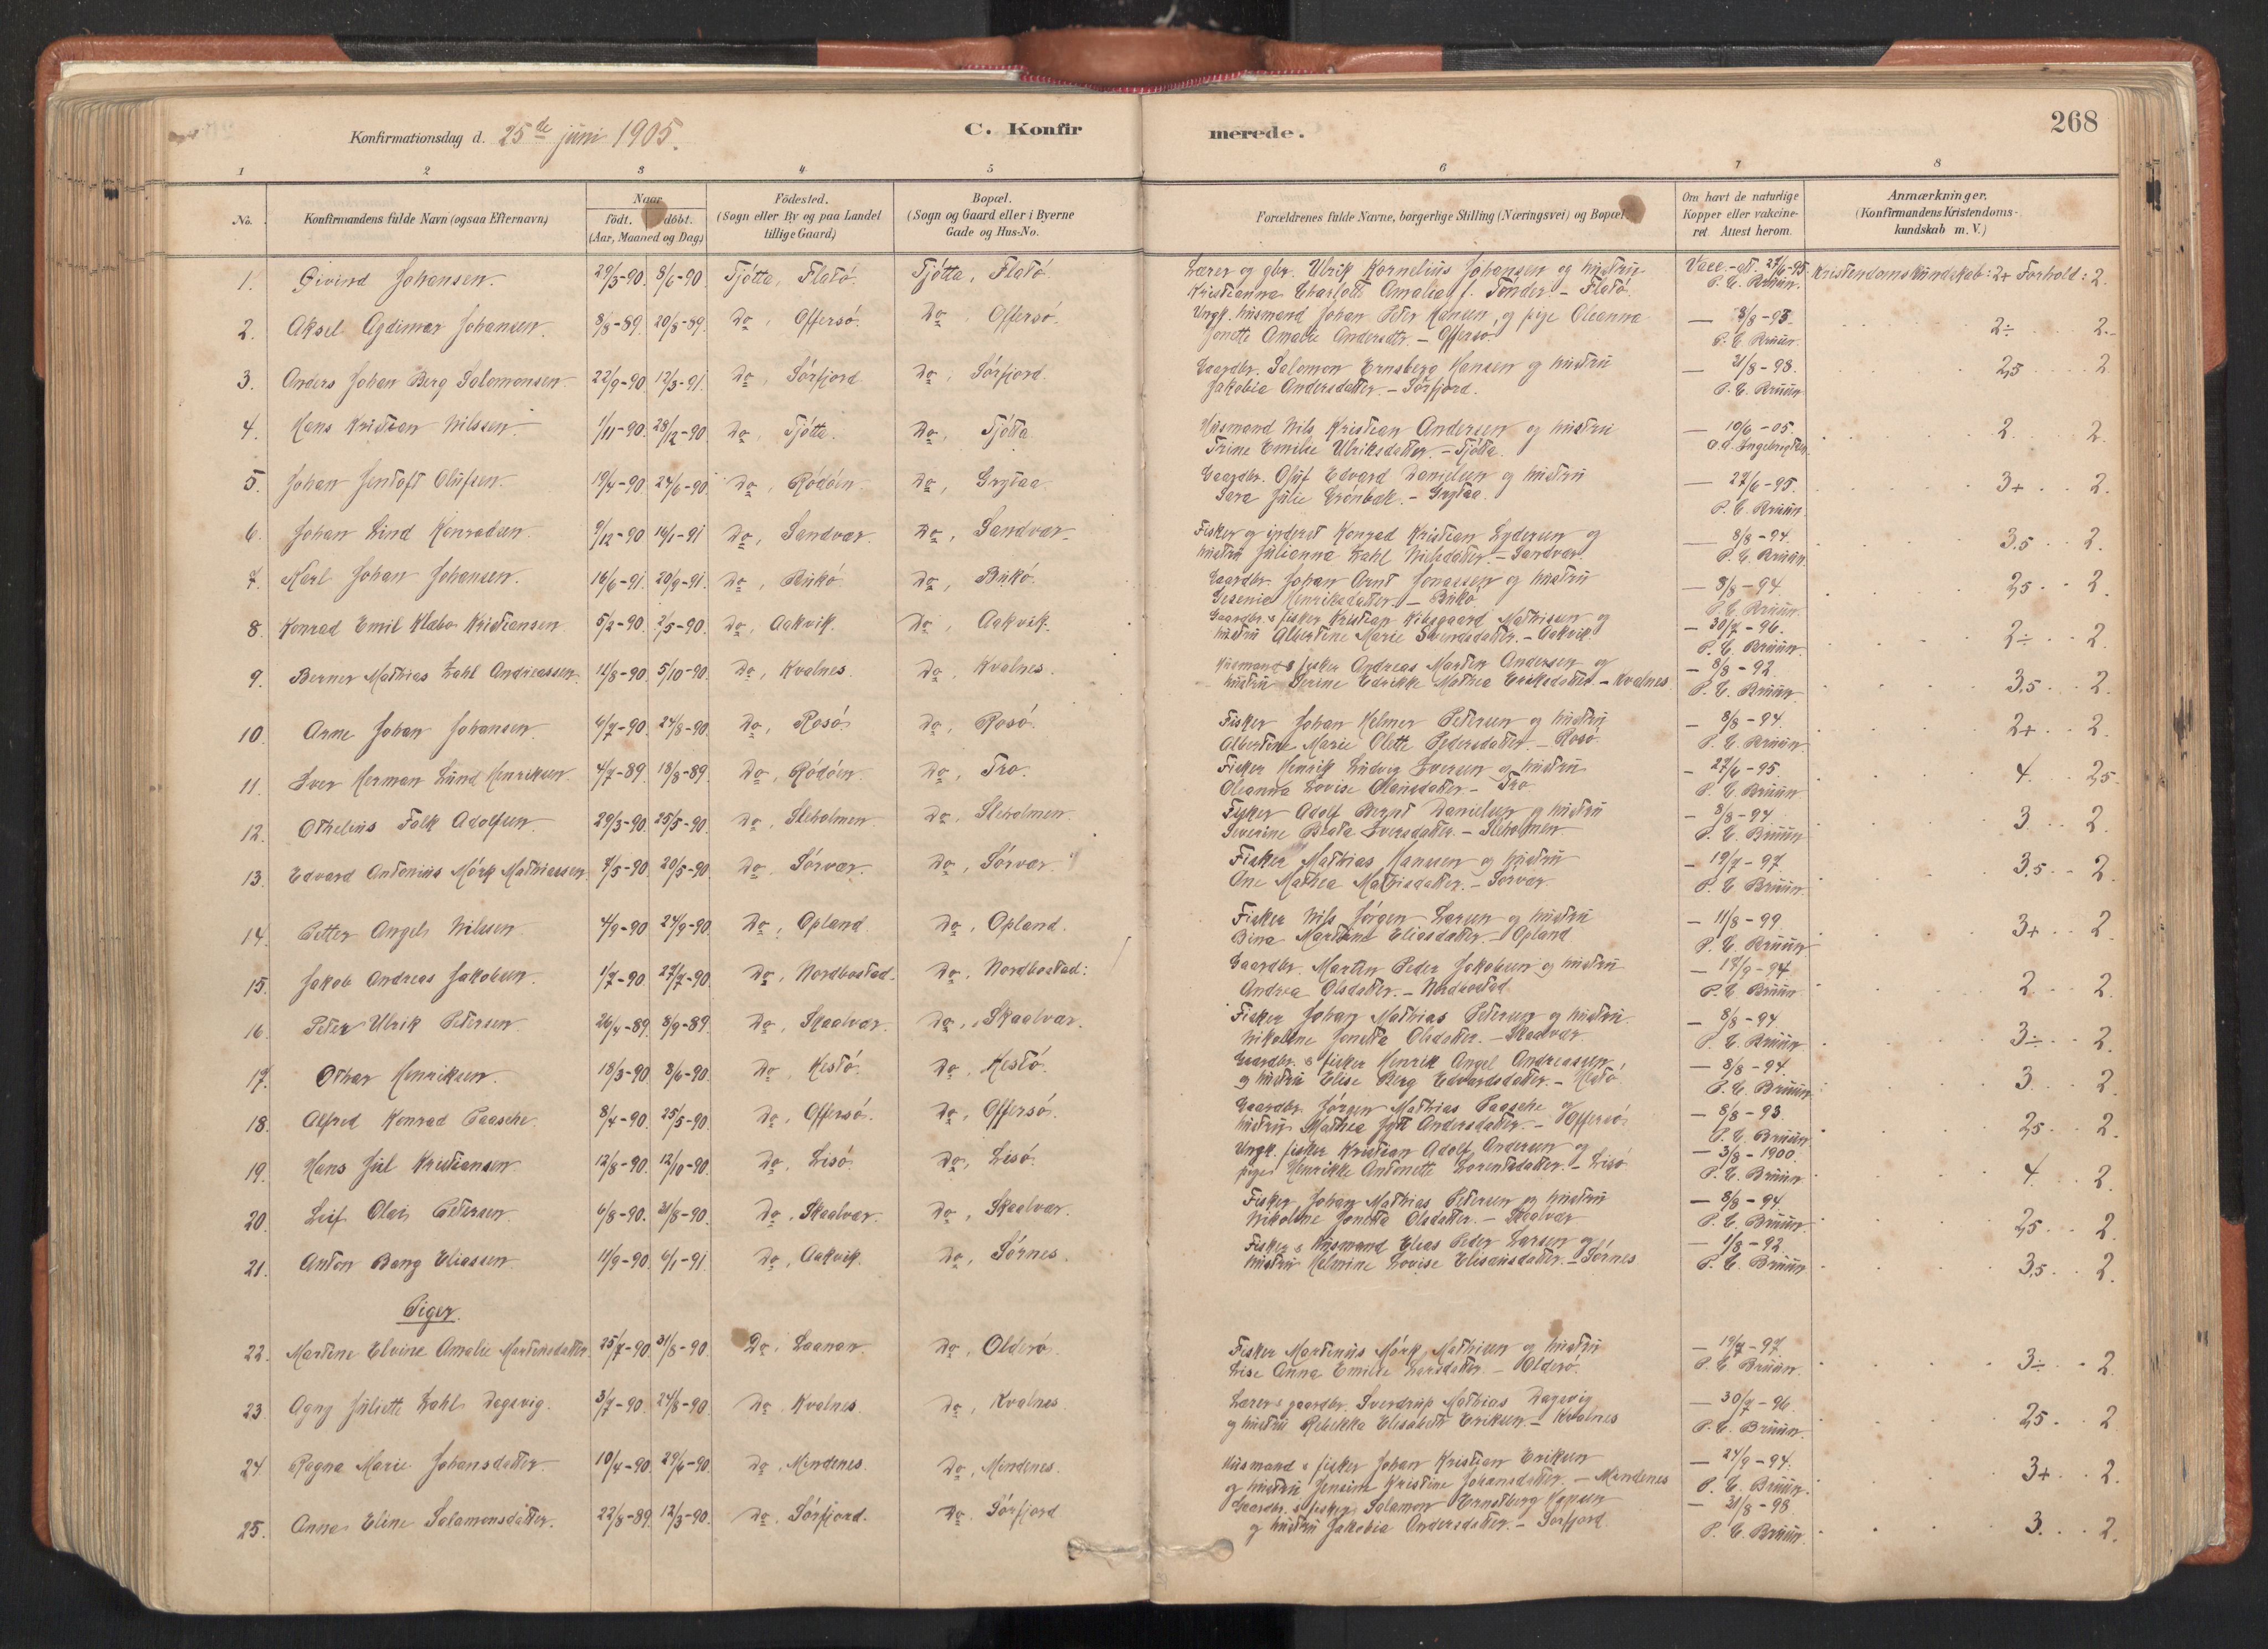 268
Konfirmationsdag d. 25de juni 1905.
C. Konfirmerede.
1 2 3 4 5 6 7 8
No.
Konfirmandens fulde Navn (ogsaa Efternavn)
Naar
födt. döbt.
(Aar, Maaned og Dag)
Födested.
(Sogn eller By og paa Landet
tillige Gaard)
Bopæl.
(Sogn og Gaard eller i Byerne
Gade og Hus-No.
Forældrenes fulde Navne, borgerlige Stilling (Næringsvei) og Bopæl
Om havt de naturlige
Kopper eller vakcine-
ret. Attest herom.
Anmærkninger.
(Konfirmandens Kristendoms-
kundskab m. V.)
1. Eivind Johansen. 29/3-90. 8/6-90 Tjótta, Flató. Tjótta, Flató. Lærer og gbr. Ulrik Kornelius Johansen og hustru
Kristianna Charlotte Amalia f. Tønder. - Flató. Vacc.-att. 27/6-95. P. E. Bruun. Kristendomskundskab: 2+ Forhold: 2.
2. Aksel Agdimar Johansen. 3/8-89. 20/8-89. Do, Offersó. Do, Offersó. Ungk. husmand Johan Peter Hansen og pige Oleanna
Jonette Amalie Andersdtr. - Offersó. — 8/8-93. P. E. Bruun. 2÷ 2.
3. Anders Johan Berg Salomonsen 22/9-90 12/3-91. Do, Sórfjord Do, Sórfjord. Gaardbr. Salomon Ernsberg Hansen og hustru
Jakobia Andersdatter. - Sórfjord. — 31/8-98. P. E. Bruun 2,5 2
4. Hans Kristian Nilssen. 1/11-90. 28/12-90 Do, Tjótta. Do, Tjótta Husmand Nils Kristian Andersen og hustru
Trine Emilie Ulriksdatter. - Tjótta. — 10/6-05. O. A. Ingebrigtsen. 2. 2.
5. Johan Jentoft Olufsen. 19/4-90 24/6-90 Do, Ródóen. Do, Grytaa. Gaardbr. Oluf Edvard Danielsen og hustru
Sara Julie Grónbæk. - Grytaa. — 27/6-95. P. E. Bruun. 3+ 2.
6. Johan Lind Konradsen. 9/12-90 14/1-91 Do, Sandvær. Do, Sandvær. Fisker og inderst Konrad Kristian Lydersen og
hustru Julianna Zahl Nielsdatter. - Sandvær — 8/8-94. P. E. Bruun. 3,5 2.
7. Karl Johan Johansen. 16/6-91. 20/9-91. Do, Bukó Do, Bukó. Gaardbr. Johan Arnt Jonassen og hustru
Gesenia Henriksdatter. - Bukó. — 8/8-94. P. E. Bruun. 2,5 2.
8. Konrad Emil Klæbo Kristiansen 5/2-90. 2/5-90. Do, Aakvik. Do, Aakvik. Gaardbr. & fisker Kristian Kibsgaard Mathisen og
hustru Albertine Marie Svendsdatter. - Aakvik — 30/7-96. P. E. Bruun. 2÷ 2.
9. Berner Mathias Zahl Andreassen. 11/8-90. 5/10-90. Do, Kvalnes. Do, Kvalnes. Husmand & fisker Andreas Martin Andersen og
hustru Serine Edrikke Mathea Eriksdatter. - Kvalnes — 8/8-92. P. E. Bruun 3,5 2.
10. Arne Johan Johansen. 6/7-90. 24/8-90. Do, Rosó. Do, Rosó. Fisker Johan Helmer Petersen og hustru
Albertine Marie Olette Pedersdatter. - Rosó. — 8/8-94. P. E. Bruun. 2+ 2.
11. Iver Herman Lund Henriksen. 4/7-89. 18/8-89. Do, Ródóen. Do, Tro. Fisker Henrik Ludvig Iversen og hustru
Oleanna Lovise Olausdatter. - Tro — 27/6-95. P. E. Bruun 4. 2,5.
12. Othelius Falk Adolfsen. 29/3-90. 25/5-90. Do, Steholmen. Do, Steholmen. Fisker Adolf Bernt Danielsen og hustru
Severine Beata Iversdatter. - Steholmen — 8/8-94. P. E. Bruun 3 2.
13. Edvard Antonius Mórk Mathiassen 7/5-90 20/5-90. Do, Sórvær. Do, Sórvær. Fisker Mathias Hansen og hustru
Ane Mathea Mathisdatter. - Sórvær — 19/7-97. P. E. Bruun. 3,5 2.
14. Petter Angel Nilssen 4/9-90 24/9-90. Do, Opland. Do, Opland. Fisker Nils Jórgen Larsen og hustru
Bina Martine Eliasdatter. - Opland — 11/8-99 P. E. Bruun 3+ 2.
15. Jakob Andreas Jakobsen. 1/7-90. 27/7-90. Do, Nordbostad. Do, Nordbostad: Gaardbr. Martin Peder Jakobsen og hustru
Andrea Olsdatter. - Nordbostad — 17/9-94 P. E. Bruun 2 2.
16. Peter Ulrik Petersen. 26/4-89. 8/9-89. Do, Skaalvær. Do, Skaalvær. Fisker Johan Mathias Petersen og hustru
Nikoline Jonetta Olsdatter. - Skaalvær. — 8/8-94. P. E. Bruun 3÷ 2.
17. Othar Henriksen. 18/3-90. 8/6-90. Do, Hestó. Do, Hestó. Gaardbr. & fisker Henrik Angel Andreassen
og hustru Elise Berg Edvardsdatter. - Hestó. — 8/8-94. P. E. Bruun 3 2.
18. Alfred Konrad Paasche. 8/4-90. 25/5-90. Do, Offersó. Do, Offersó. Gaardbr. Jórgen Mathias Paasche og
hustru Mathea Jytt Andersdatter. - Offersó. — 8/8-93 P. E. Bruun 2,5 2.
19. Hans Jul Kristiansen. 12/8-90. 12/10-90. Do, Lisó. Do, Lisó. Ungk. fisker Kristian Adolf Andersen og
pige Henrikke Antonette Lorentsdatter. - Lisó — 3/8-1900. P. E. Bruun 4. 2.
20. Leif Olai Petersen. 6/8-90. 31/8-90. Do, Skaalvær. Do, Skaalvær. Fisker Johan Mathias Petersen og hustru
Nikoline Jonetta Olsdatter. - Skaalvær — 8/8-94. P. E. Bruun 2,5 2.
21. Anton Bang Eliassen. 11/9-90. 6/1-91. Do, Aakvik. Do, Sórnes. Fisker & husmand Elias Peder Larsen og
hustru Helmine Lovise Elisæusdatter. - Sórnes — 1/8-92. P. E. Bruun 3,5 2.
Piger.
22. Martine Elvine Amalie Martinsdatter. 25/7-90 31/8-90. Do, Laanan. Do, Olderó. Fisker Martinius Mórk Mathisen og hustru
Lise Anna Emilie Larsdatter. - Olderó. — 19/7-97. P. E. Bruun. 3÷ 2
23. Agny Juliette Zahl Dagsvig. 3/7-90. 24/8-90 Do, Kvalnes. Do, Kvalnes. Lærer & gaardbr. Sverdrup Mathias Dagsvig
og hustru Rebekka Elisabeth Eriksen - Kvalnes — 30/7-96. P. E. Bruun. 2,5 2
24. Ragna Marie Johansdatter. 10/4-90. 29/6-90. Do, Mindenes. Do, Mindenes. Husmand & fisker Johan Kristian Eriksen
og hustru Jensine Kristine Johansdatter. - Mindenes — 24/9-94. P. E. Bruun. 3+ 2.
25. Anna Eline Salamonsdatter. 22/8-89. 12/3-90. Do, Sórfjord. Do, Sórfjord Gaardbr. & fisker Salamon Ernstberg Hansen
og hustru Jakobia Andersdatter. - Sorfjord. — 31/8-98. P. E. Bruun 3. 2.